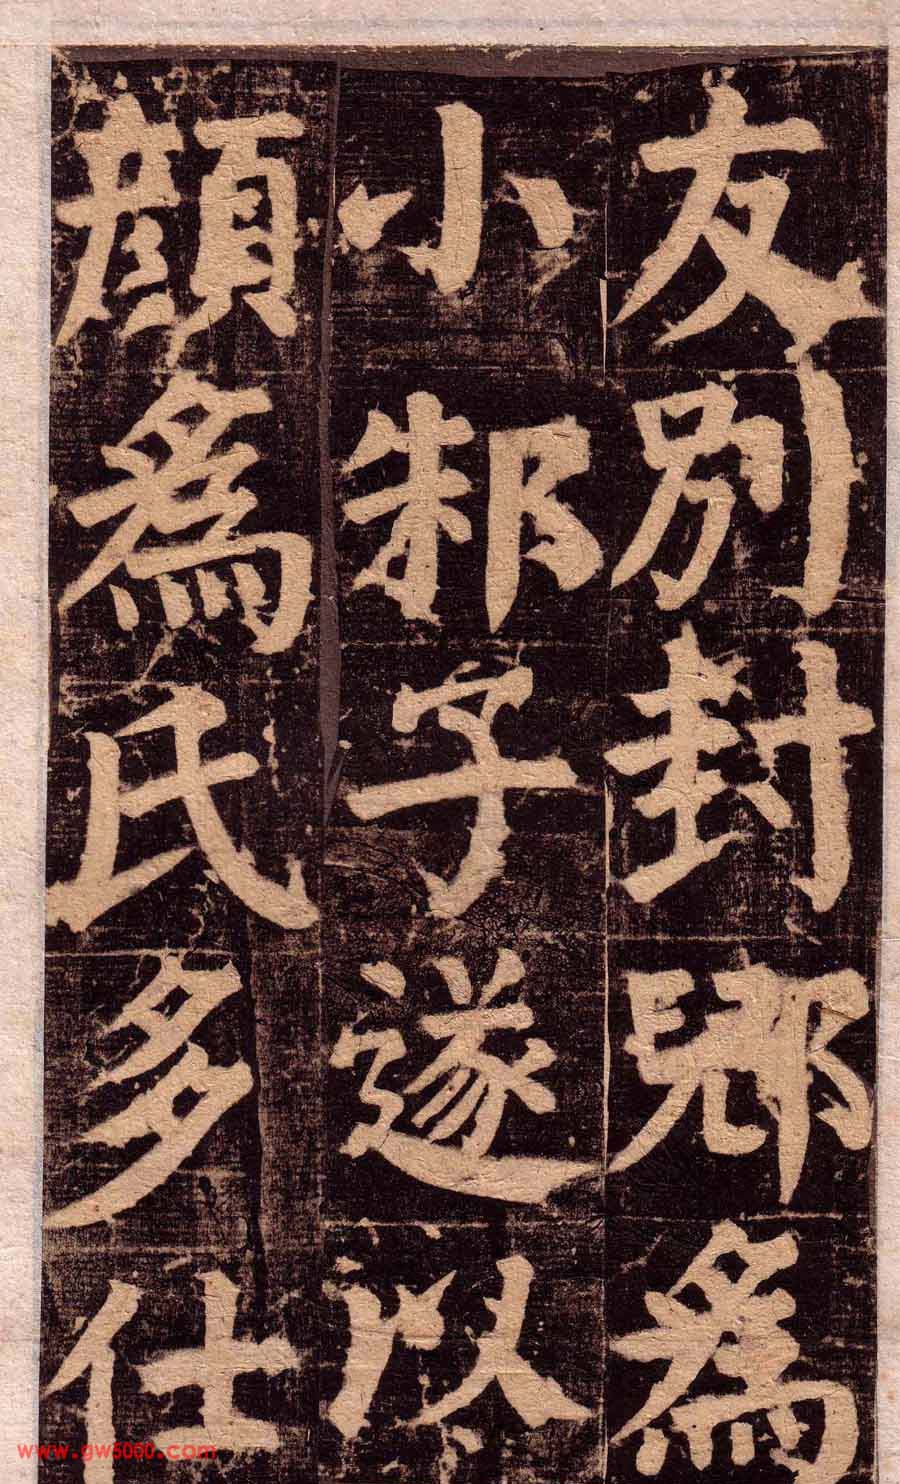 友別封郳爲
小邾子遂以
顏爲氏多仕
www.gw5000.com